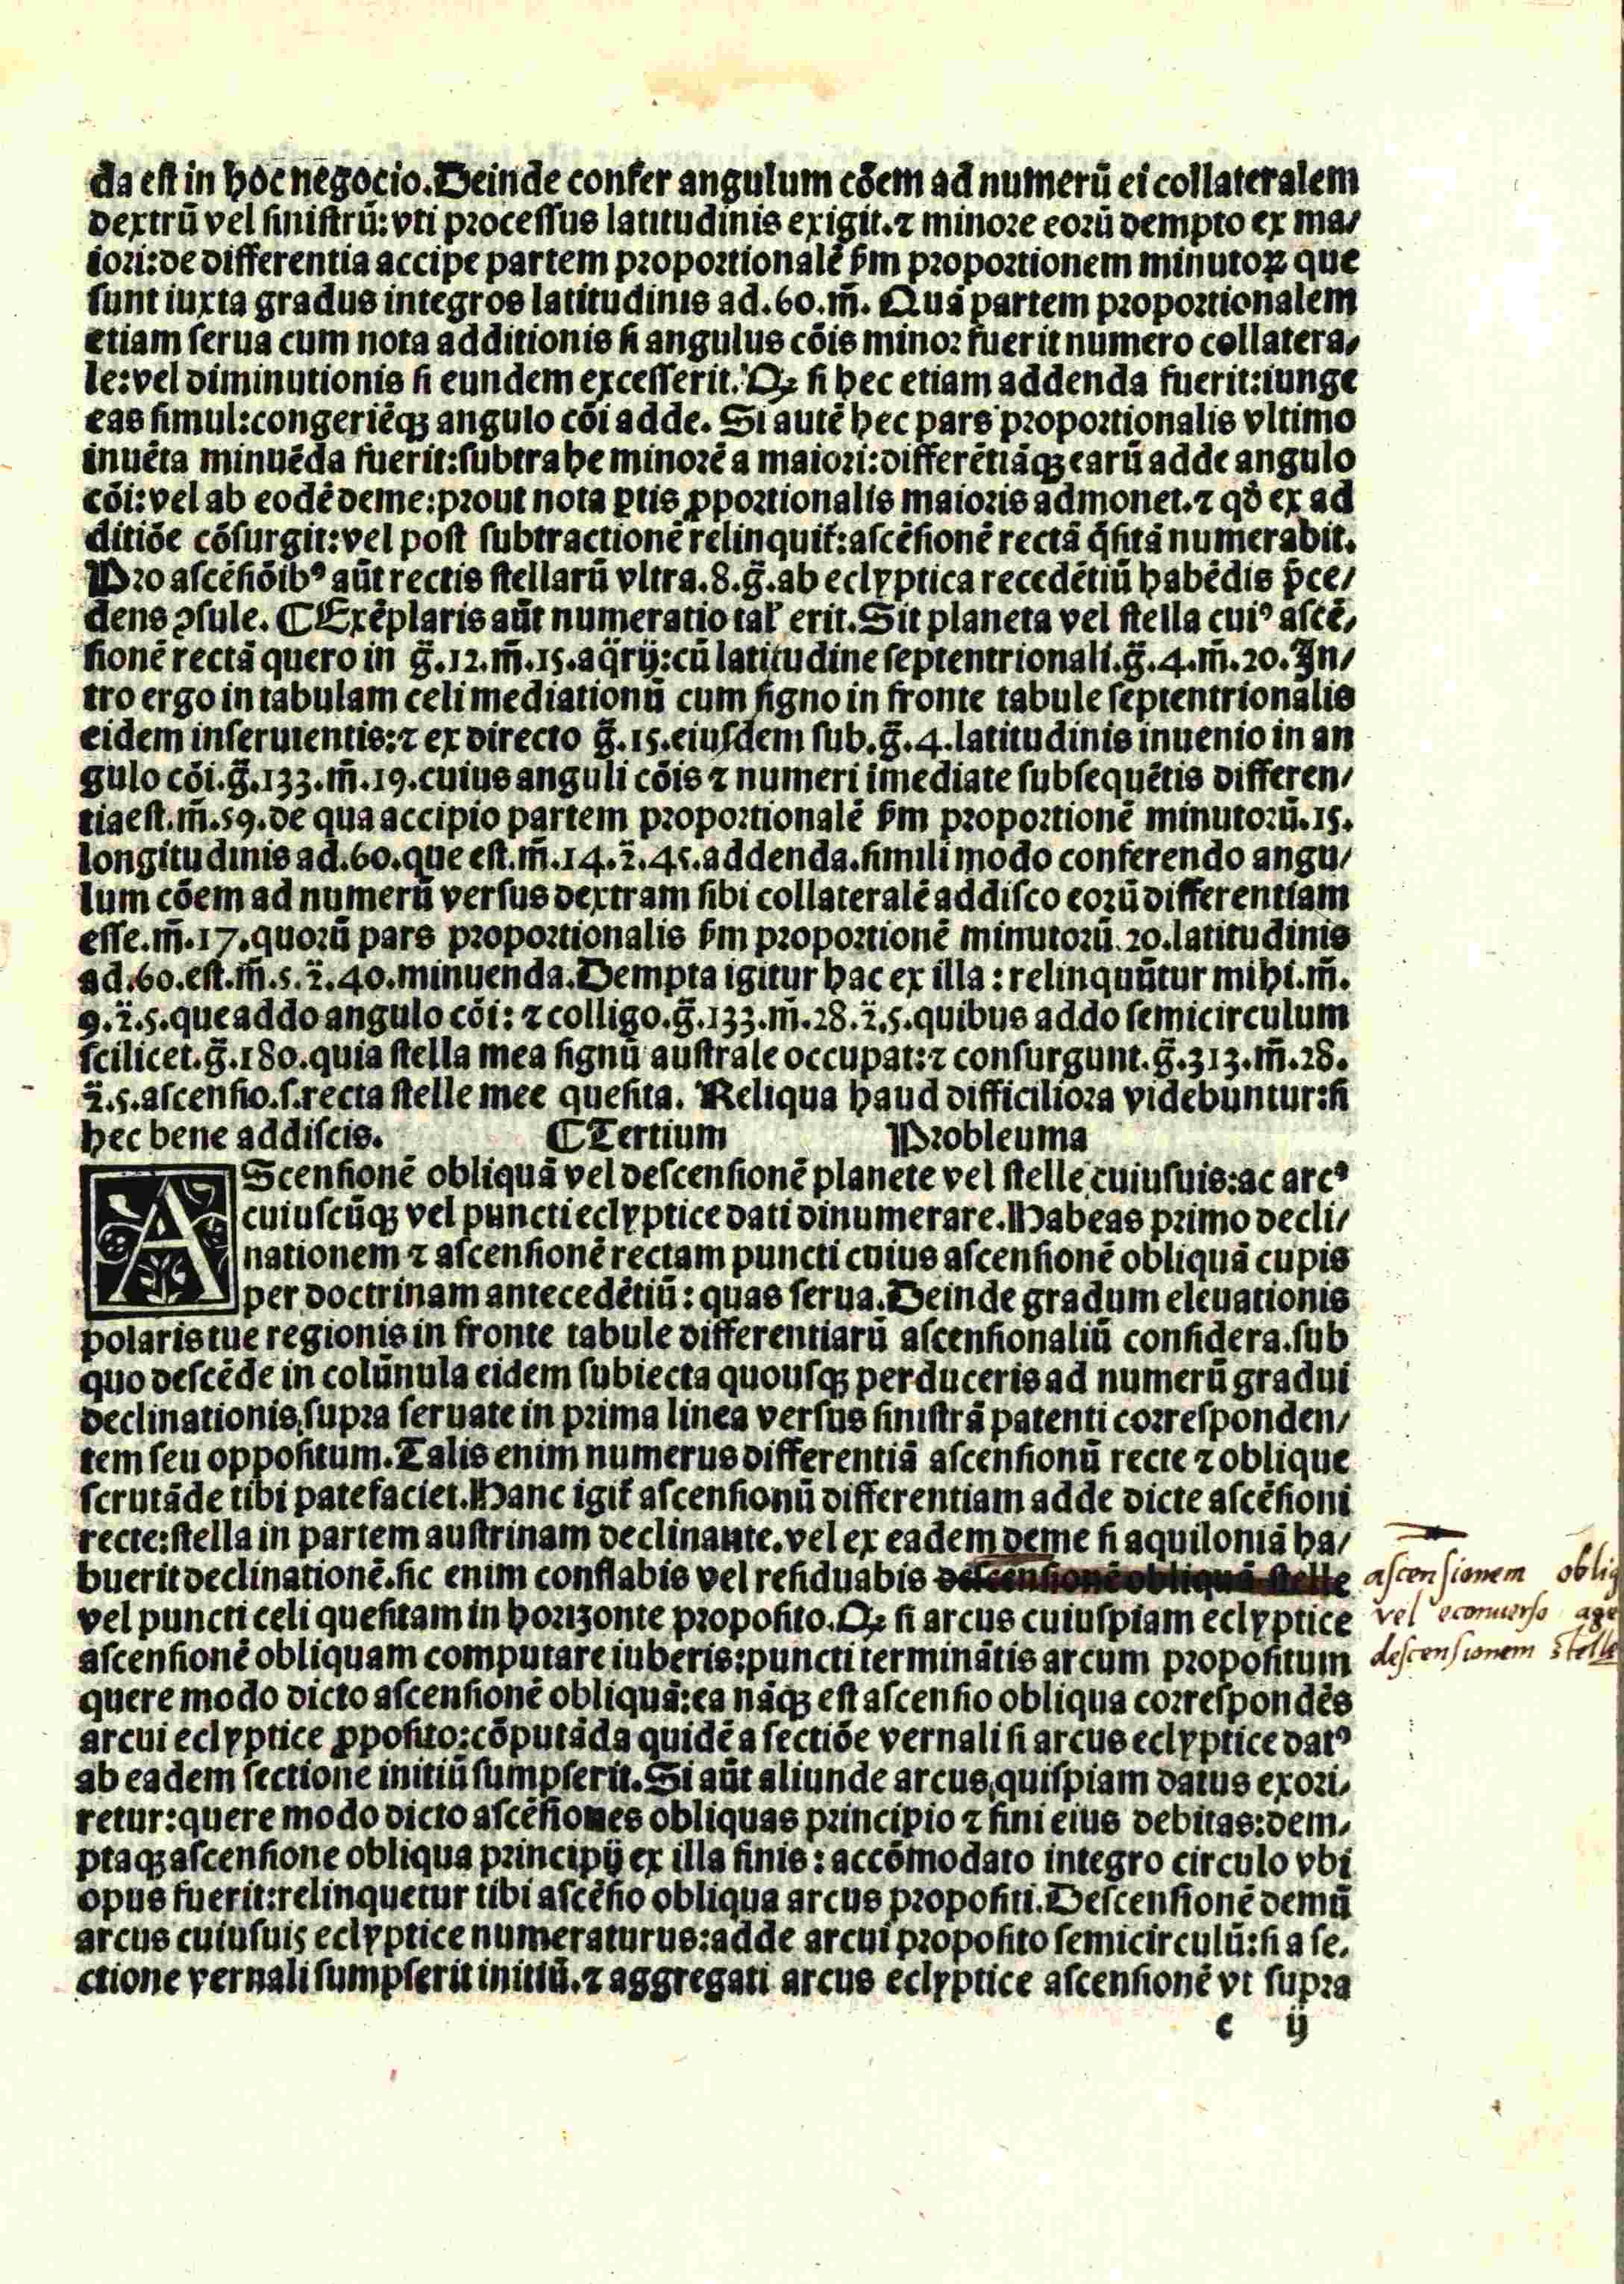 da est in hoc negocio. Deinde confer angulum cōem ad numerū ei collateralem
dextrū vel sinistrū: vti processus latitudinis exigit. ⁊ minore eorū dempto ex ma/
iori: de differentia accipe partem proportionalē ẜm proportionem minutoꝝ que
sunt iuxta gradus integros latitudinis ad. 60. m̄. Quā partem proportionalem
etiam serua cum nota additionis si angulus cōis minor fuerit numero collatera/
le: vel diminutionis si eundem excesserit. Qꝫ si hec etiam addenda fuerit: iunge
eas simul: congeriēqꝫ angulo cōi adde. Si autē hec pars proportionalis vltimo
inuēta minuēda fuerit: subtrahe minorē a maiori: differētiāqꝫ earū adde angulo
cōi: vel ab eodē deme: prout nota ꝑtis ꝓportionalis maioris admonet. ⁊ qđ ex ad
ditiōe cōsurgit: vel post subtractionē relinquit᷑: ascēsionē rectā q̄sitā numerabit.
Pro ascēsiōibꝰ aūt rectis stellarū vltra. 8. g̃. ab eclyptica recedētiū habēdis p̄ce/
dens ꝯsule. ¶ Exēplaris aūt numeratio tal' erit. Sit planeta vel stella cuiꝰ ascē/
sionē rectā quero in g̃. 12. m̄. 15. aq̈rij: cū latitudine septentrionali. g̃. 4. m̄. 20. In/
tro ergo in tabulam celi mediationū cum signo in fronte tabule septentrionalis
eidem inseruientis: ⁊ ex directo g̃. 15. eiusdem sub. g̃. 4. latitudinis inuenio in an
gulo cōi. g̃. 133. m̄. 19. cuius anguli cōis ⁊ numeri imediate subsequētis differen/
tia est. m̄. 59. de qua accipio partem proportionalē ẜm proportionē minutorū. 15.
longitudinis ad. 60. que est. m̄. 14. 2̄. 45. addenda. simili modo conferendo angu/
lum cōem ad numerū versus dextram sibi collateralē addisco eorū differentiam
esse. m̄. 17. quorū pars proportionalis ẜm proportionē minutorū. 20. latitudinis
ad. 60. est. m̄. 5. 2̄. 40. minuenda. Dempta igitur hac ex illa: relinquūtur mihi. m̄.
9. 2̄. 5. que addo angulo cōi: ⁊ colligo. g̃. 133. m̄. 28. 2̄. 5. quibus addo semicirculum
scilicet. g̃. 180. quia stella mea signū australe occupat: ⁊ consurgunt. g̃. 313. m̄. 28.
2̄. 5. ascensio. s. recta stelle mee quesita. Reliqua haud difficiliora videbuntur: si
hec bene addiscis. ¶ Tertium Probleuma
AScensionē obliquā vel descensionē planete vel stelle cuiusuis: ac arcꝰ
cuiuscūqꝫ vel puncti eclyptice dati dinumerare. Habeas primo decli/
nationem ⁊ ascensionē rectam puncti cuius ascensionē obliquā cupis
per doctrinam antecedētiū: quas serua. Deinde gradum eleuationis
polaris tue regionis in fronte tabule differentiarū ascensionaliū considera. sub
quo descēde in colūnula eidem subiecta quousqꝫ perduceris ad numerū gradui
declinationis supra seruate in prima linea versus sinistrā patenti corresponden/
tem seu oppositum. Talis enim numerus differentiā ascensionū recte ⁊ oblique
scrutāde tibi patefaciet. Hanc igit᷑ ascensionū differentiam adde dicte ascēsioni
recte: stella in partem austrinam declinante. vel ex eadem deme si aquiloniā ha/
buerit declinationē. sic enim conflabis vel residuabis descensionē obliquā stelle
vel puncti celi quesitam in horizonte proposito. Qꝫ si arcus cuiuspiam eclyptice
ascensionē obliquam computare iuberis: puncti terminātis arcum propositum
quere modo dicto ascensionē obliquā: ea nāqꝫ est ascensio obliqua correspondēs
arcui eclyptice ꝓposito: cōputāda quidē a sectiōe vernali si arcus eclyptice datꝰ
ab eadem sectione initiū sumpserit. Si aūt aliunde arcus quispiam datus exori/
retur: quere modo dicto ascēsiones obliquas principio ⁊ fini eius debitas: dem/
ptaqꝫ ascensione obliqua principij ex illa finis: accōmodato integro circulo vbi
opus fuerit: relinquetur tibi ascēsio obliqua arcus propositi. Descensionē demū
arcus cuiusuis eclyptice numeraturus: adde arcui proposito semicirculū: si a se/
ctione vernali sumpserit initiū. ⁊ aggregati arcus eclyptice ascensionē vt supra
c ij
ascensionem
vel econuerso
descensionem stelle